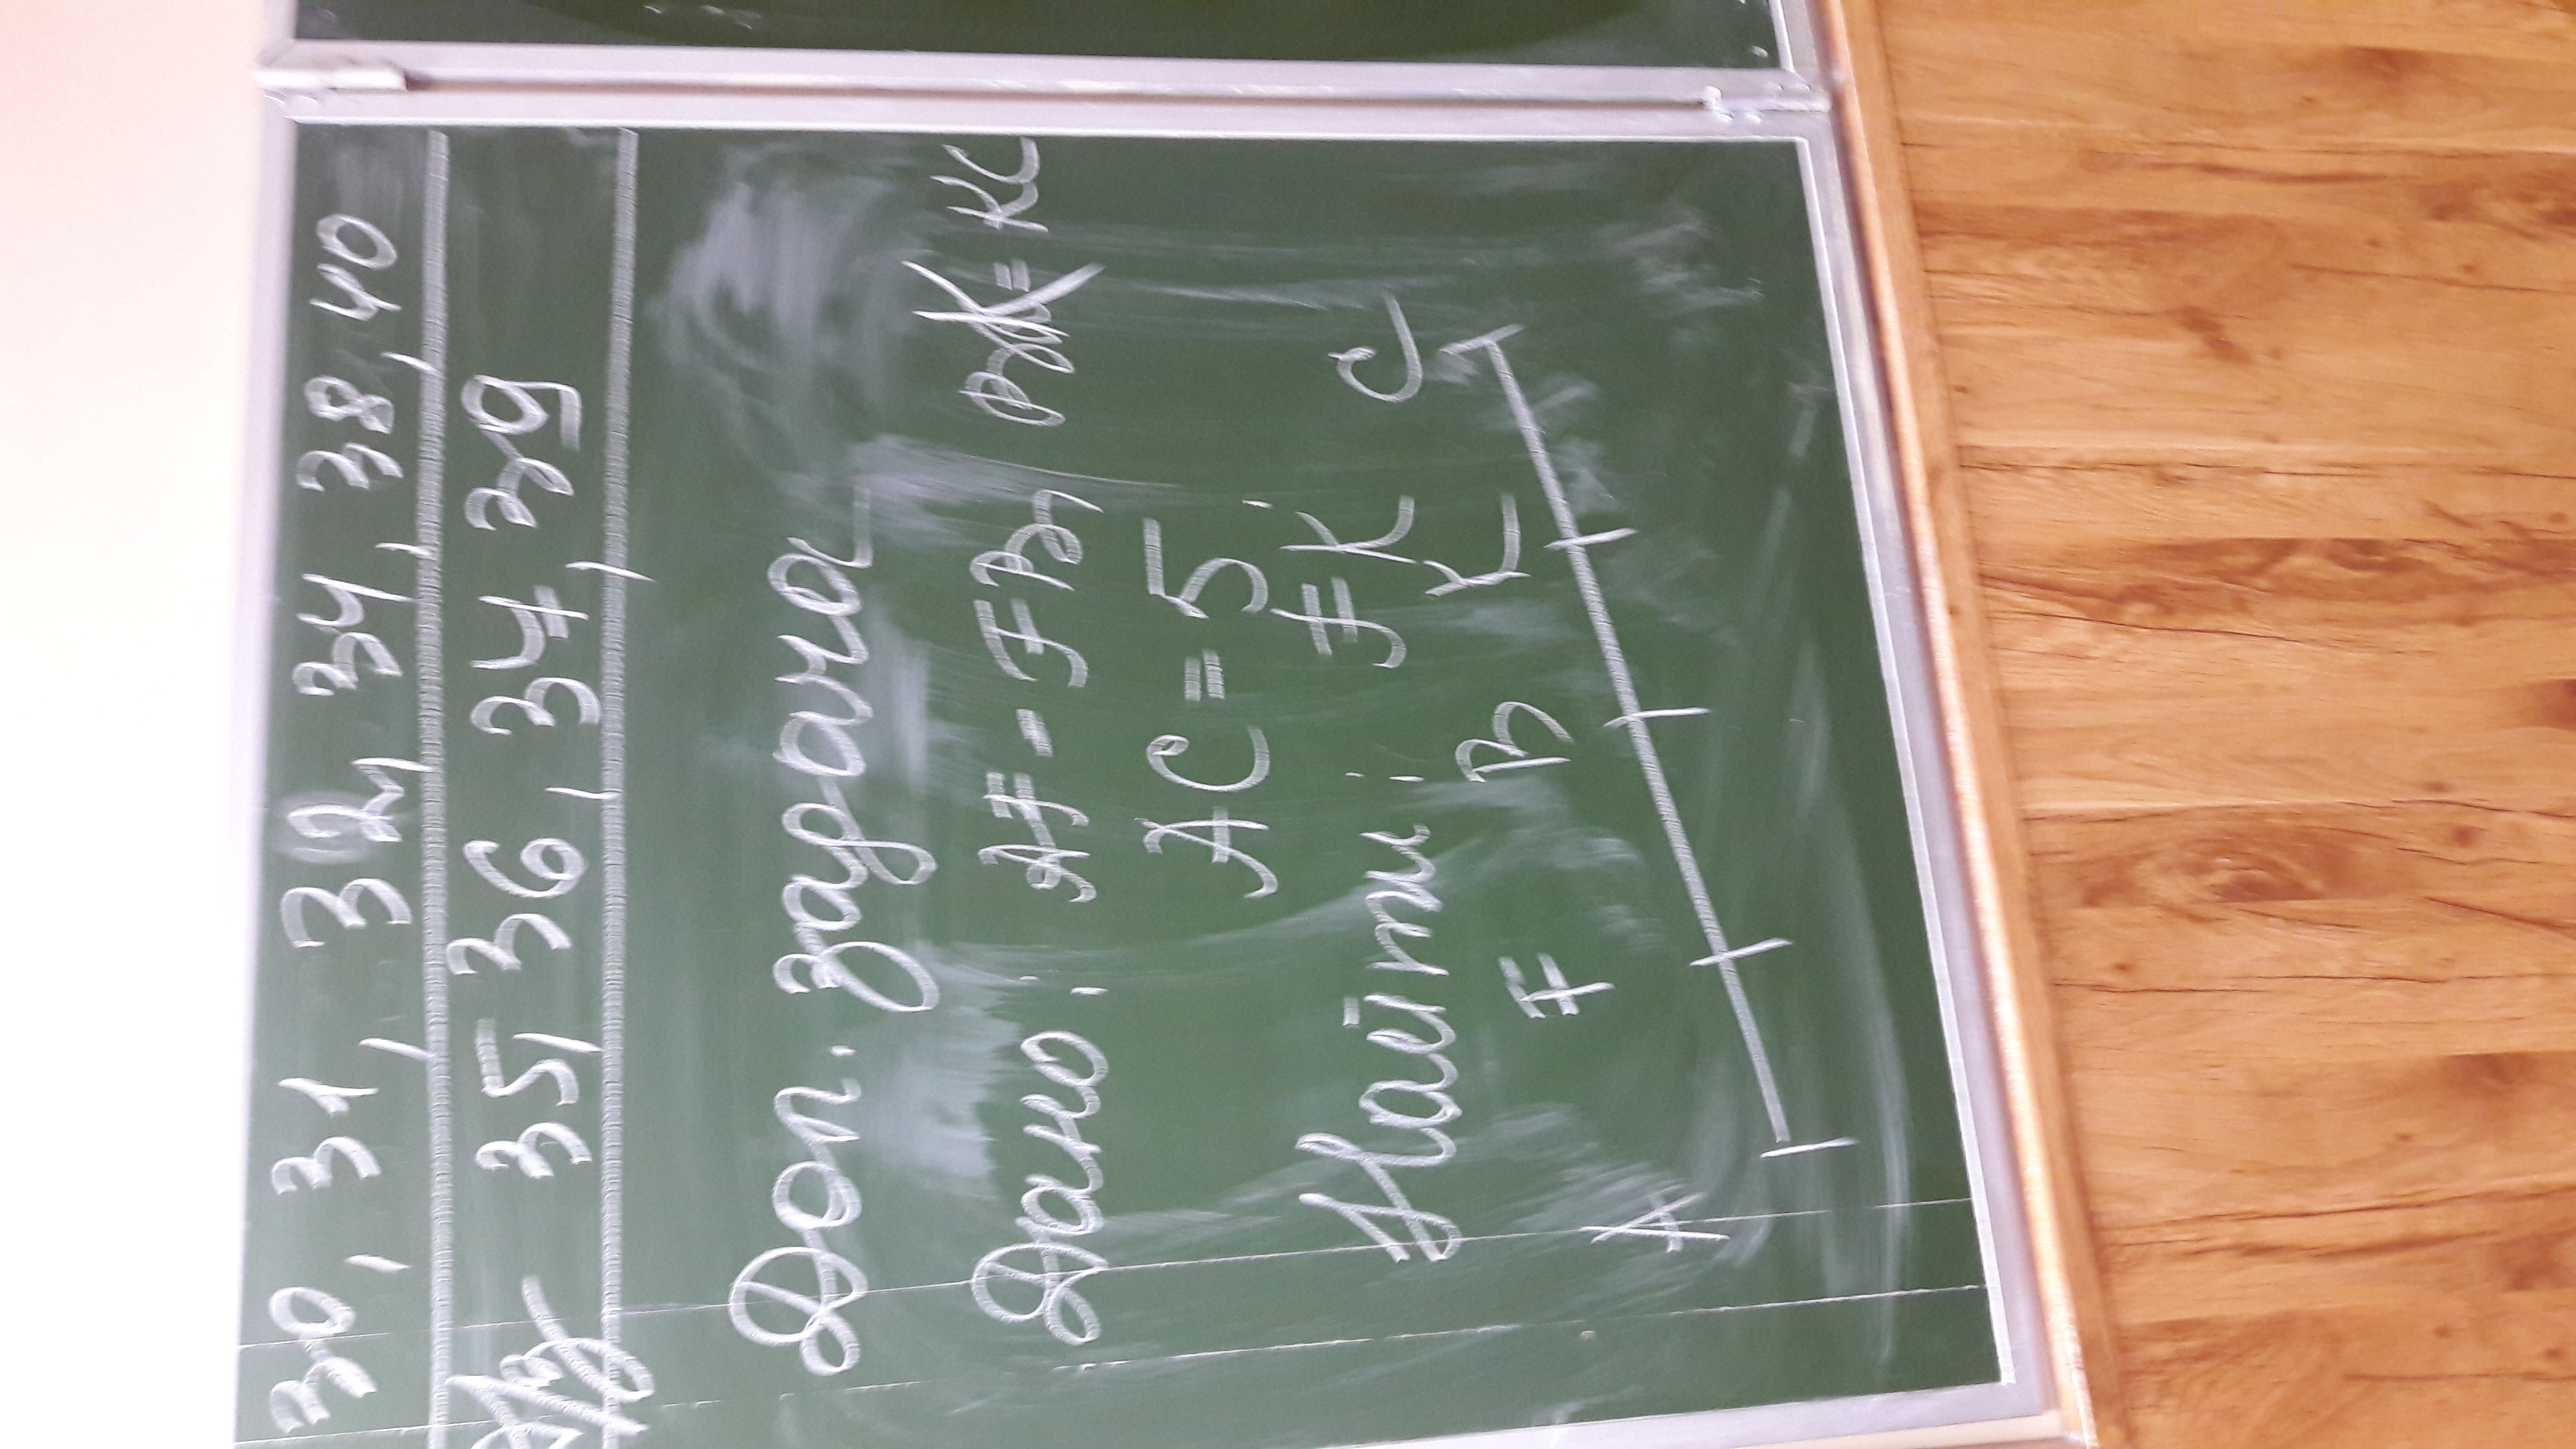 30, 31, 32, 34, 38, 40
Д/з 35, 36, 37, 39
Доп. задача
Дано: AF = FB, BK = KC
AC = 5.
Найти: FK
A F B K C